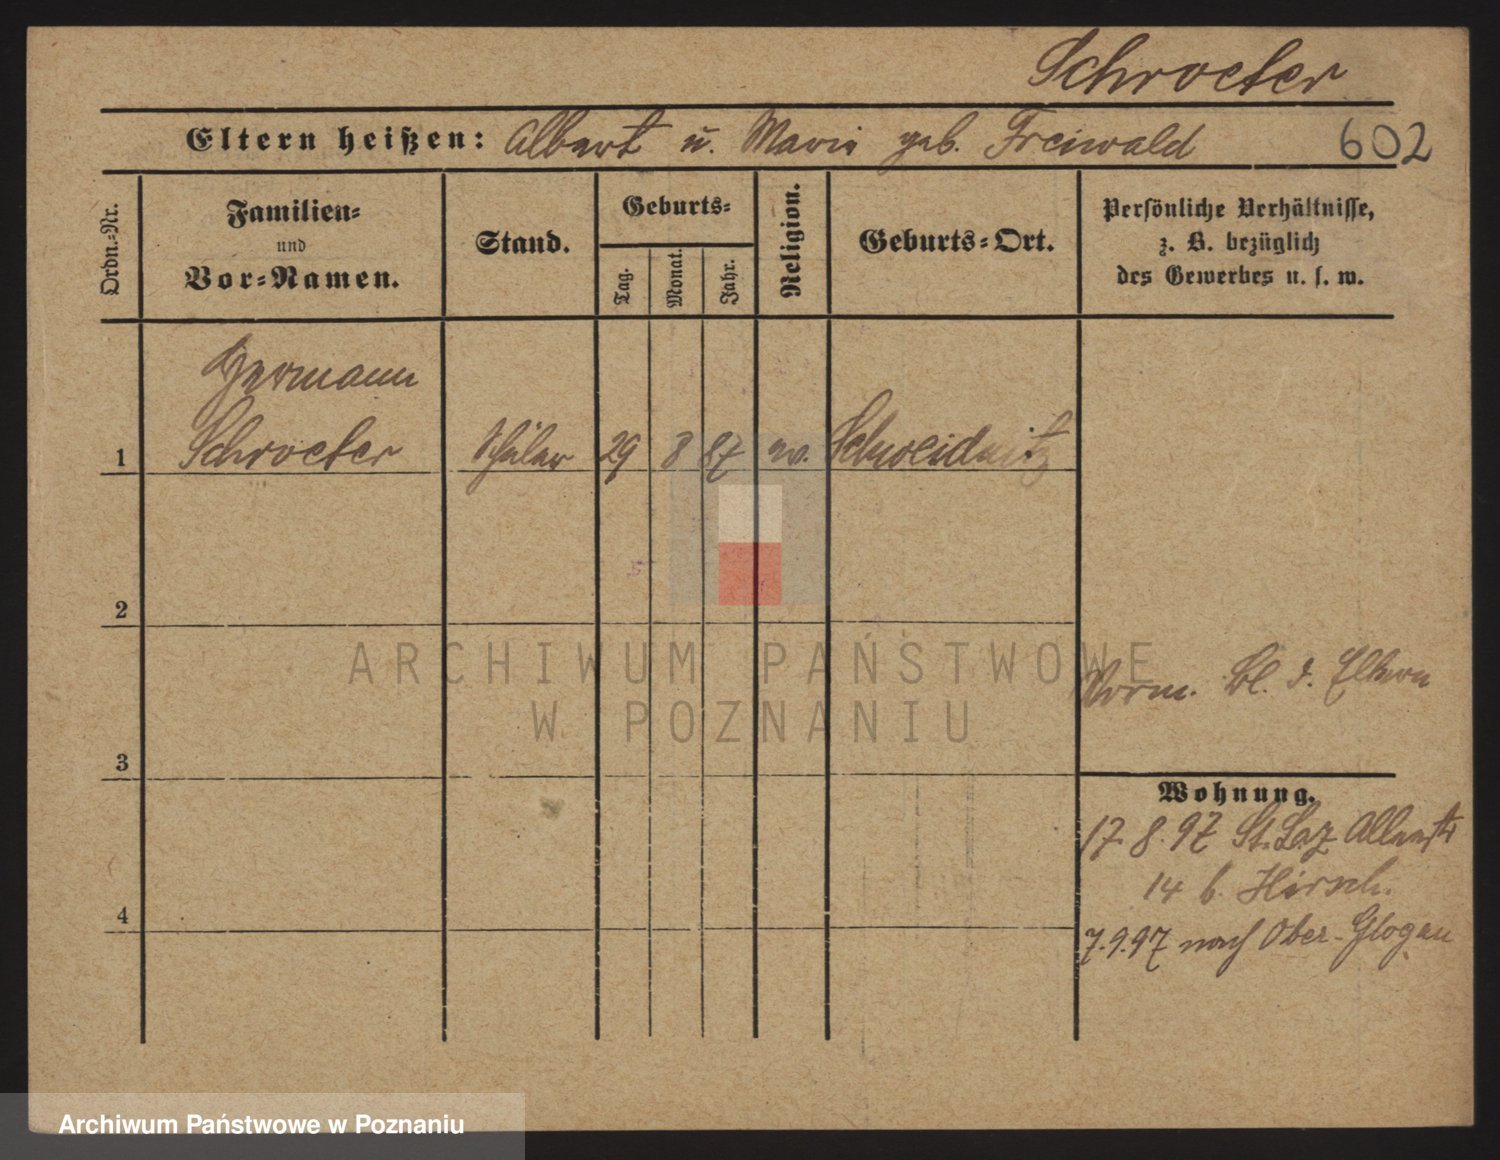 Schroeter
Eltern heißen: Albert u. Marie geb. Freiwald
602
Ordn.-Nr.
Familien-
und
Vor-Namen.
Stand.
Geburts-
Tag.
Monat.
Jahr.
Religion.
Geburts-Ort.
Persönliche Verhältnisse,
z. B. bezüglich
des Gewerbes u. s. w.
Hermann
1 Schroeter Schüler 29 8 87 ev. Schweidnitz
2
ARCHIWUM PAŃSTWOWE
W POZNANIU
Vorm. Bl. d. Eltern
3
Wohnung.
17.8.97 St. Laz Allerstr
14 b. Hirsch.
4
7.9.97 nach Ober-Glogau
Archiwum Państwowe w Poznaniu